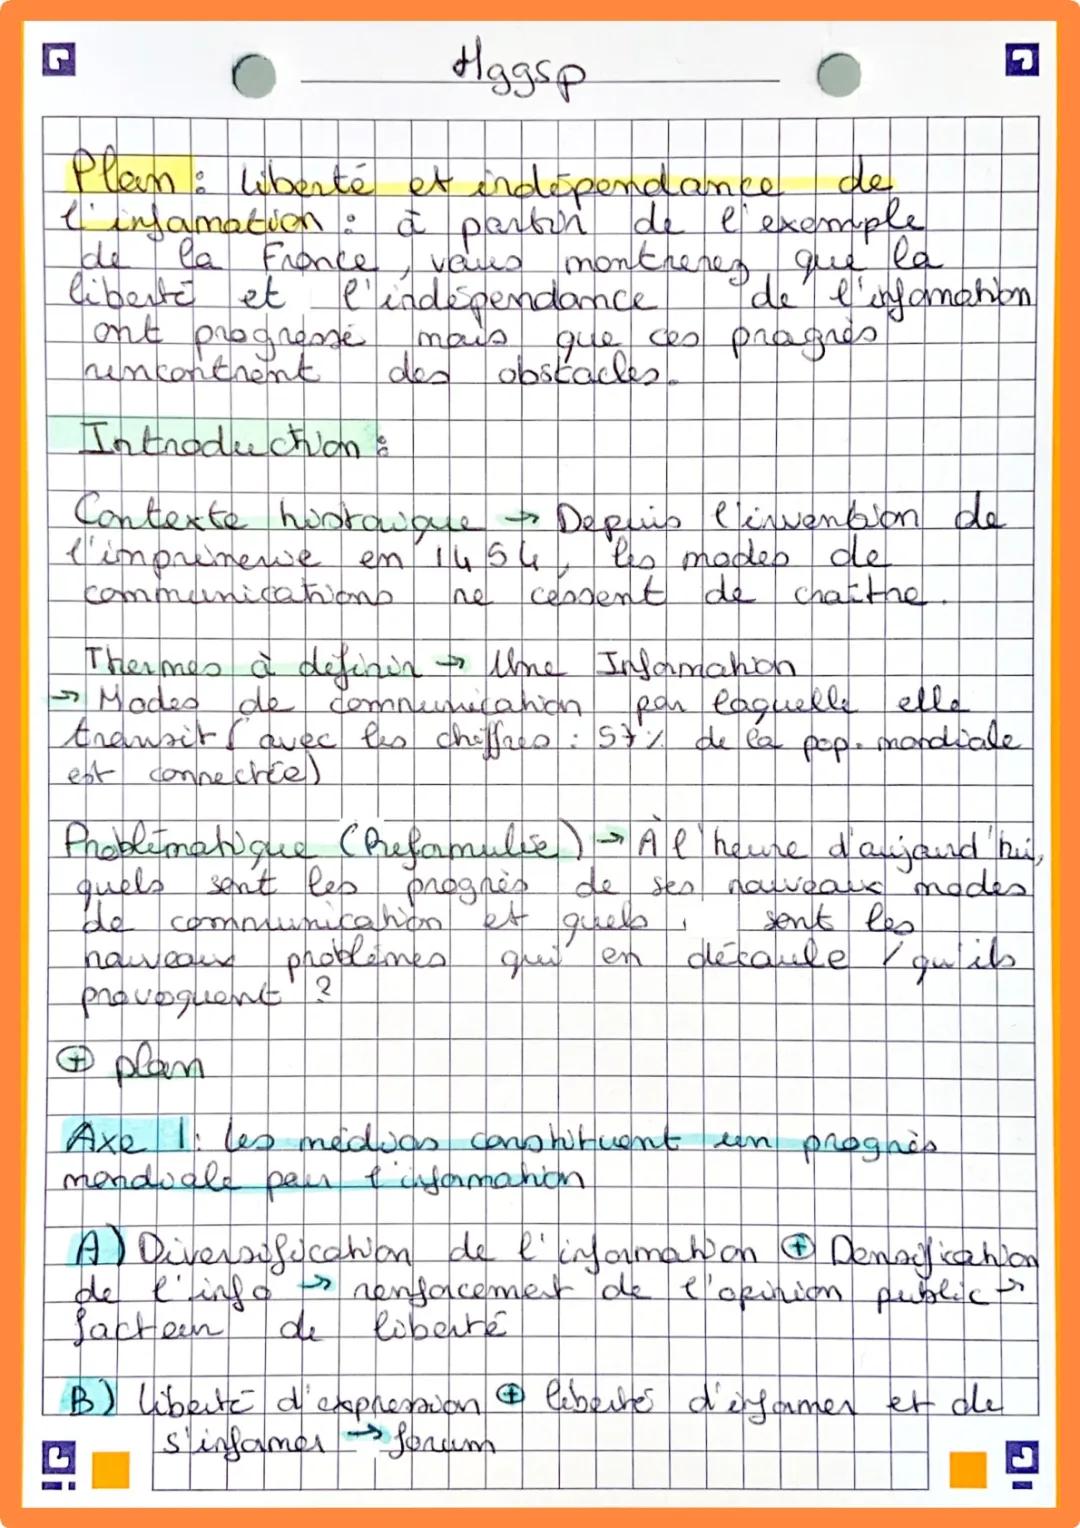 Hggsp
Plan : liberté et indépendance de
l'information : à partir de l'exemple
de la France, vous montrerez que la
liberté et l'indépendance de l'information
ont progressé mais que ces progrès
rencontrent des obstacles.
Introduction :
Contexte historique → Depuis l'invention de
l'imprimerie en 1454, les modes de
communications ne cessent de croître.
Thermes à définir → Une Information
→ Modes de communication par laquelle elle
transit (avec les chiffres : 57% de la pop. mondiale
est connectée)
Problématique (Reformulée) → À l'heure d'aujourd'hui,
quels sont les progrès de ses nouveaux modes
de communication et quels sont les
nouveaux problèmes qui en découle / qu'ils
provoquent ?
⊕ plan
Axe 1: les médias constituent un progrès
mondiale pour l'information
A) Diversification de l'information ⊕ Densification
de l'info → renforcement de l'opinion public →
facteur de liberté
B) liberté d'expression ⊕ libertés d'informer et de
s'informer → forum